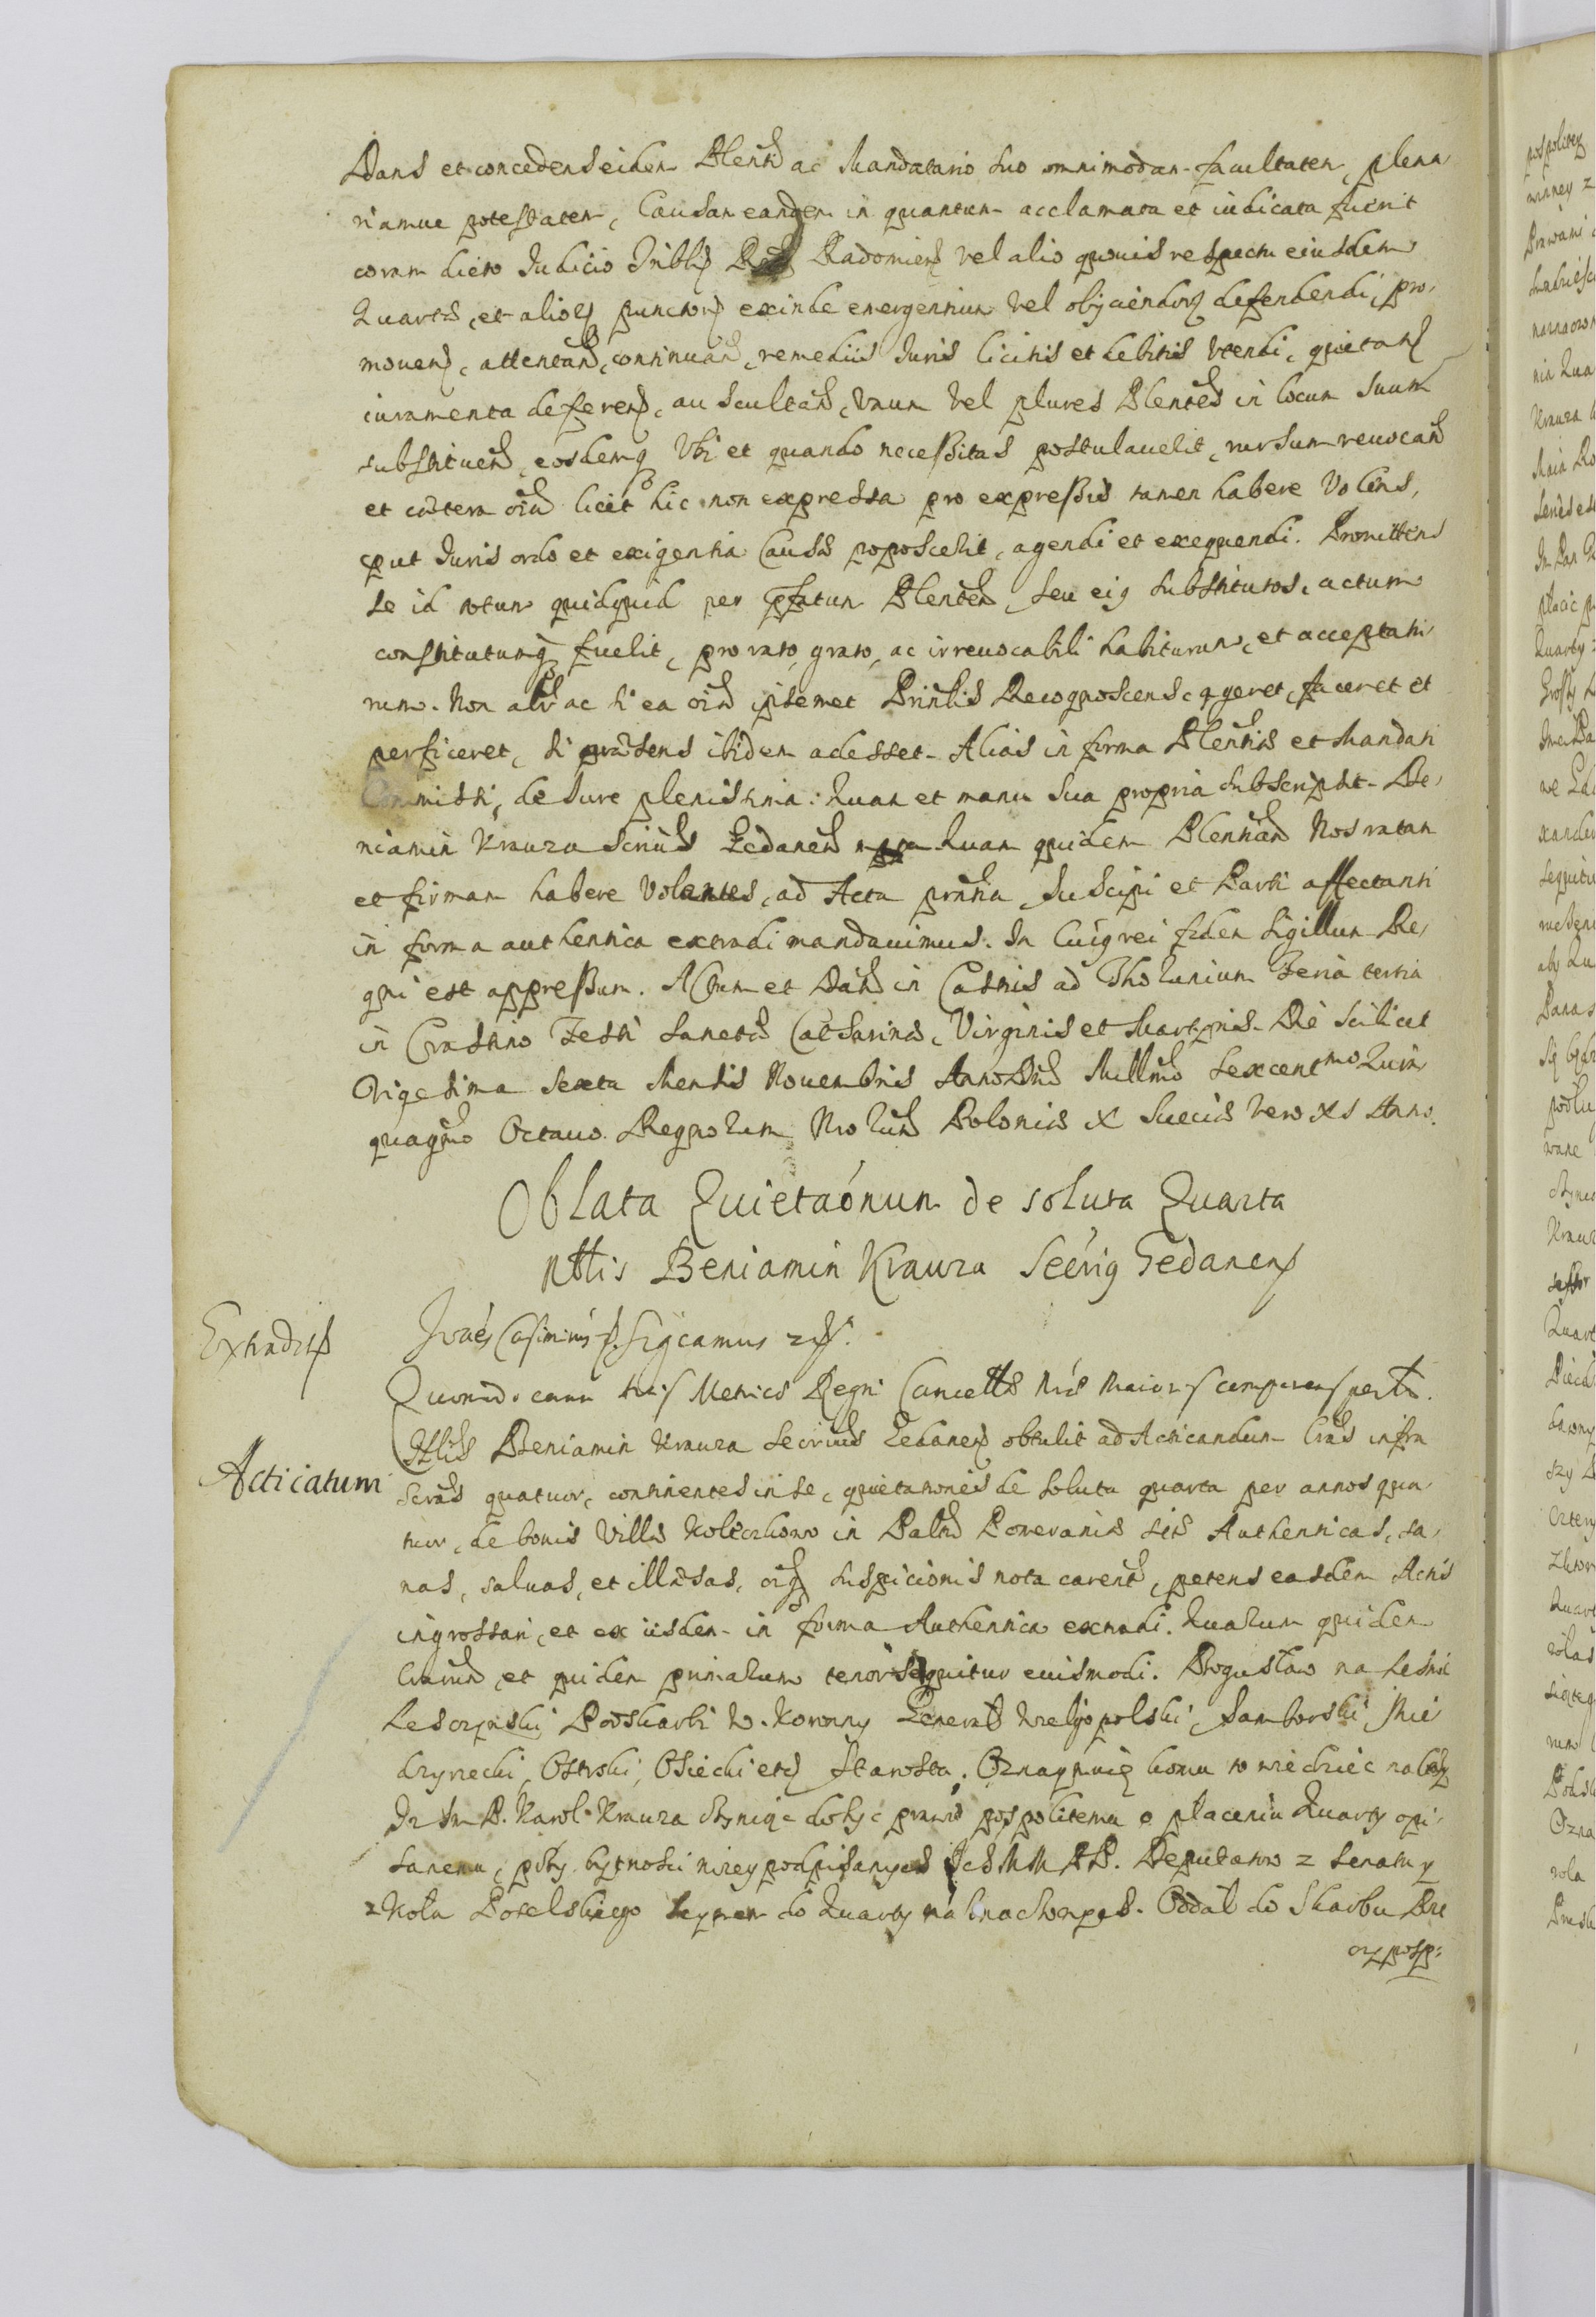 Dans et concedens eidem Plenti ac Mandatario suo omnimodam facultatem, plena
riamve potestatem, Causam eandem in quantum acclamata et iudicata fuerit
coram dicto Judicio Triblis Radomien vel alio quovis respectu eiusdem
Quartæ, et alior punctor exinde emergentium vel obijciendor defendendi, pro,
movend, attentand, continuand, remediis Juris licitis et debitis utendi, quietand
iuramenta deferend, auscultand, unum vel plures Plentes in locum suum
substituend, eosdemq ubi et quando necessitas postulaverit, rursum revocand
et cætera oia licet hic non expressa pro expressis tamen habere volens,
put Juris ordo et exigentia Causæ poposcerit, agendi et exequendi. Promittens
se id totum quidquid per pfatum Plentem, seu eig substitutos, actum
constitutumq fuerit, pro rato, grato, ac irrevocabili habiturum, et acceptatu
rum. Non alr ac si ea oia ipsemet Prinlis Recognoscens ageret, faceret et
perficeret, si præsens ibidem adesset. Alias in forma Plentiæ et Mandati
Commissi, de Jure plenissima. Quam et manu sua propria subscripsit. Be,
niamin Krauza Secrius Gedanen Quam quidem Plentiam Nos ratam
et firmam habere volentes, ad Acta prntia suscipi et Parti affectanti
in forma authentica extradi mandavimus. In Cuig rei fidem Sigillum Re,
gni est appressum. Actum et Datum in Castris ad Thorunium Feria tertia
in Crastino Festi Sanctæ Catharinæ, Virginis et Martyris. Die scilicet
Vigesima sexta Mensis Novembris Anno Dni Millmo Sexcentmo Quin
quagmo Octavo. Regnorum Nrorum Poloniæ X Sueciæ vero XI Anno.
Oblata Quietaonum de soluta Quarta
Nblis Beniamin Krauza Secrig Gedanen
Extradit
Joães Casimirus Sigcamus
Quoniã. coram Metricæ Regni Cancellæ Nræ Maior comparens
Acticatum
Nblis Beniamin Krauza Secrius Gedanen obtulit ad Acticandum lras infra
scras quatuor, continentes in se, quietationes de soluta quarta per annos qua
tuor, de bonis Villæ Koleczkowo in Palu Pomeraniæ sitæ Authenticas, sa,
nas, salvas, et illæsas, oiq suspicionis nota carent, petens easdem Actis
ingrossari, et ex iisdem in forma Authentica extradi. Quarum quidem
lrarum, et quidem primarum tenor sequitur euismodi. Bogusław na Lesznie
Lesczynski Podskarbi W. Koronny Generał Wielgopolski, Samborski Mie
dzyrzecki, Ostroki, Osiecki etc Starosta. Oznaymuię komu to wiedziec nalezy
Iz Im P. Karol Krauza czyniąc dosyc prawu pospolitemu o płaceniu Quarty opi,
sanemu, przy bytnosci nizey podpisanych Ich MM PP. Deputatow z Senatu y
z Koła Poselskiego Seymem do Quarty naznaczonych. Oddał do Skarbu Rze
czyposp: